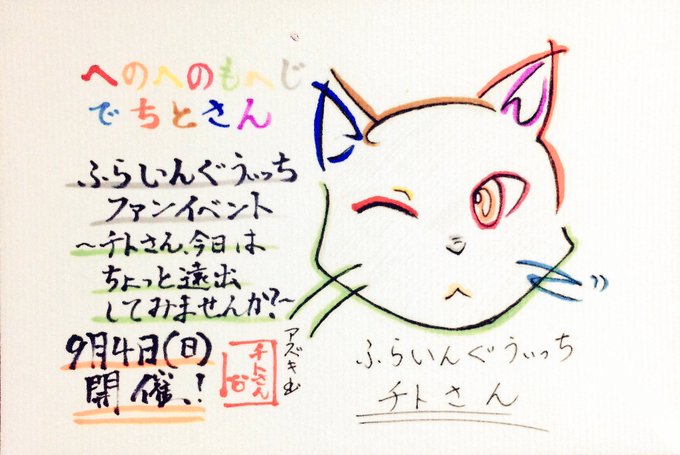 へのへのもへじ
でちとさん
ふらいんぐうぃっち
ファンイベント
〜チトさん、今日は
ちょっと遠出
してみませんか?〜
9月4日(日)
開催、!
チトさん
アズキ
ふらいんぐうぃっち
チトさん